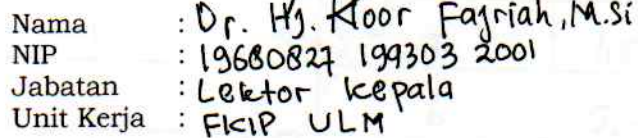 Nama : Dr. Hj. Noor Fajriah, M.Si
NIP : 19680827 199303 2001
Jabatan : Lektor kepala
Unit Kerja : FKIP ULM